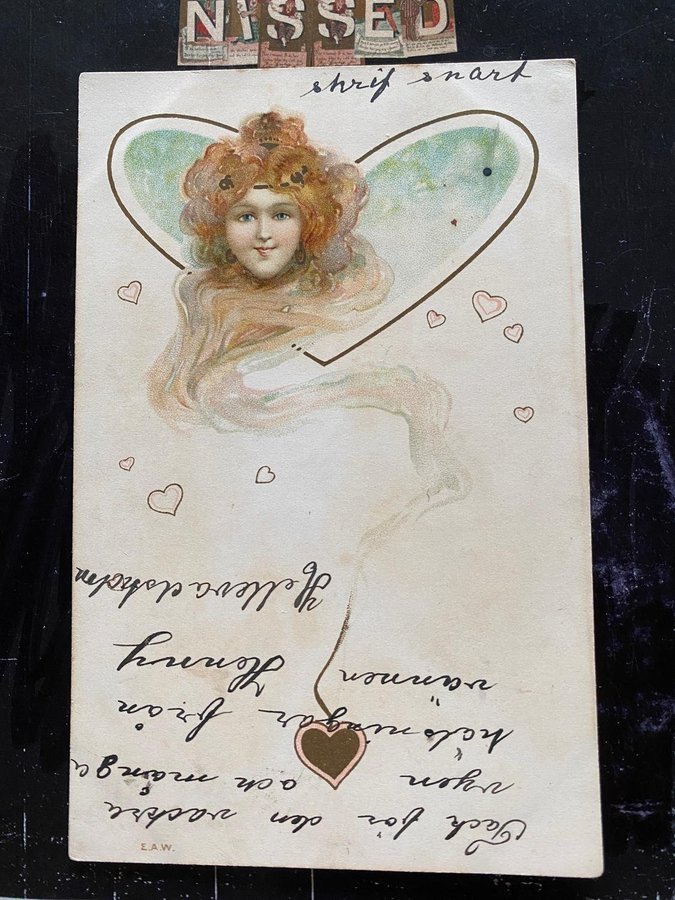 NISSED
skrif snart
Tack för den vackra
vyen och många
hälsningar från
vännen Henny
Hellevadsholm
E.A.W.